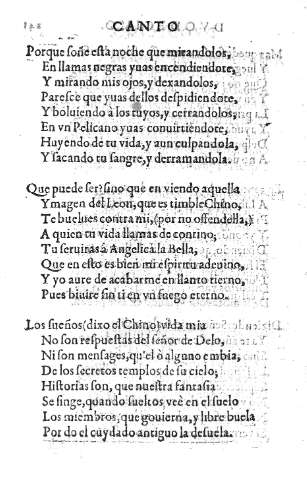 CANTO
Porque soñe esta noche que mirandolos,
En llamas negras yuas encendiendote,
Y mirando mis ojos, y dexandolos,
Paresce que yuas dellos despidiendote,
Y boluiendo à los tuyos, y cerrandolos,
En vn Pelicano yuas conuirtiendote,
Huyendo de tu vida, y aun culpandola,
Y sacando tu sangre, y derramandola.
Que puede ser? sino que en viendo aquella
Ymagen del Leon, que es timble Chino,
Te buelues contra mi, (por no offendella,)
A quien tu vida llamas de contino;
Tu seruiras à Angelica la Bella,
Que en esto es bien mi espiritu adeuino,
Y yo aure de acabarme en llanto tierno,
Pues biuire sin ti en vn fuego eterno.
Los sueños (dixo el Chino) vida mia
No son respuestas del señor de Delo,
Ni son mensages, qu'el ò alguno embia,
De los secretos templos de su cielo;
Historias son, que nuestra fantasia
Se finge, quando sueltos veè en el suelo
Los miembros, que gouierna, y libre buela
Por do el cuydado antiguo la desuela.